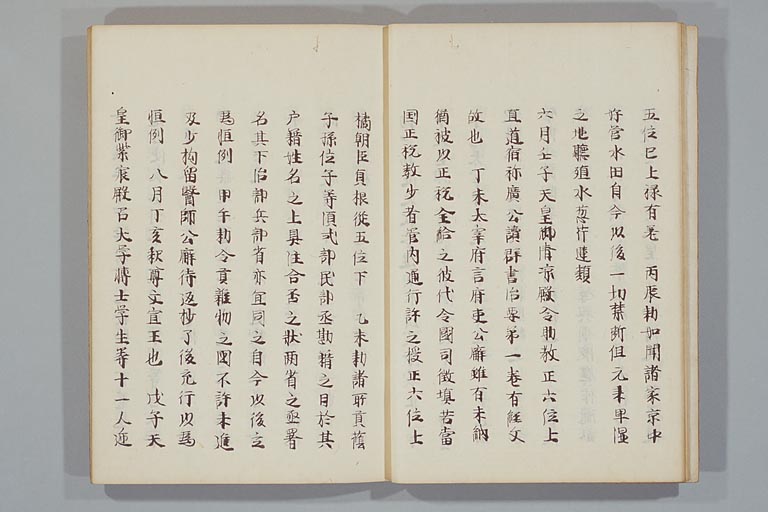 五位已上禄有差 丙辰勅如聞諸家京中
好営水田自今以後一切禁断但元来卑湿
之地聴殖水葱芹蓮類
六月壬子天皇御清凉殿令助教正六位上
直道宿祢廣公讀群書治要第一巻有経文
故也 丁未太宰府言府吏公廨雖有未納
猶被以正税全給之彼代令國司徴填若當
国正税数少者管内通行許之授正六位上
橘朝臣貞根従五位下 乙未勅諸所貢蔭
子孫位子等須式部民部丞勘籍之日於其
戸籍姓名之上具注合否之状両省之丞署
名其下治部兵部省亦宜同之自今以後立
為恒例 甲午勅令貢雑物之國不許未進
及少拘留醫師公廨待返抄了後充行以為
恒例 八月丁亥釈奠文宣王也 戊子天
皇御紫宸殿召大学博士学生等十一人逓